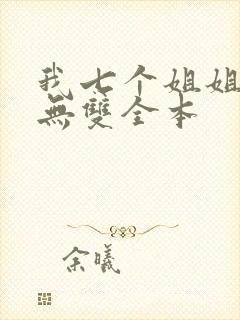 我七个姐姐
無雙全本
余曦